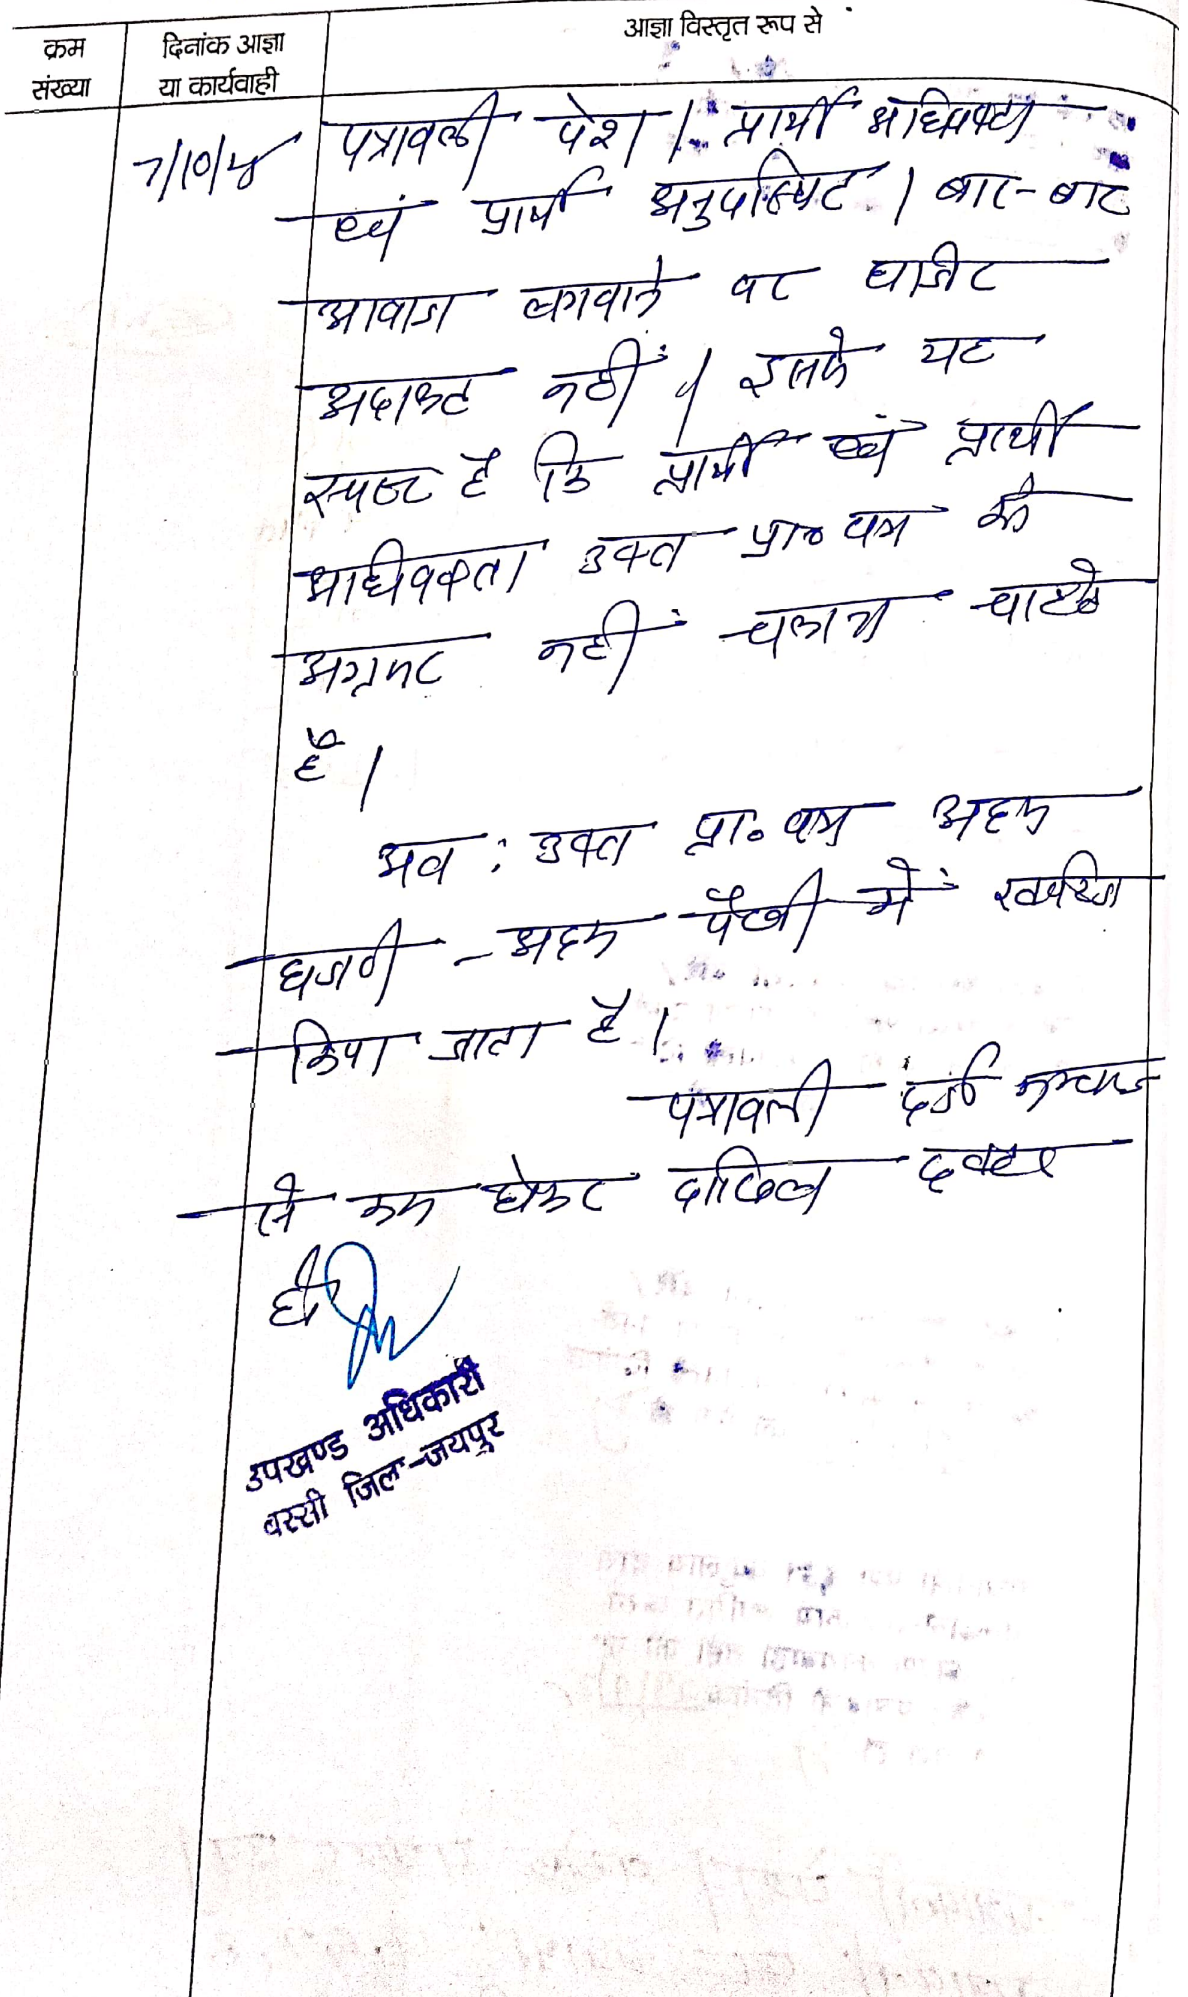 क्रम
संख्या
दिनांक आज्ञा
या कार्यवाही
आज्ञा विस्तृत रूप से
7/10/
पत्रावली पेश । प्रार्थी अधिवक्ता
एवं प्रार्थी अनुपस्थित । बार-बार
आवाज लगवाने पर हाजिर
अदालत नहीं । इससे यह
स्पष्ट है कि प्रार्थी एवं प्रार्थी
अधिवक्ता उक्त प्रा० पत्र को
अग्रसर नहीं चलाना चाहते
है ।
अत : उक्त प्रा० पत्र अदम
हाजरी - अदम पैरवी में खारिज
किया जाता है ।
पत्रावली दर्ज नम्बर
से कम होकर दाखिल दफ्तर
हो
उपखण्ड अधिकारी
बस्सी जिला-जयपुर